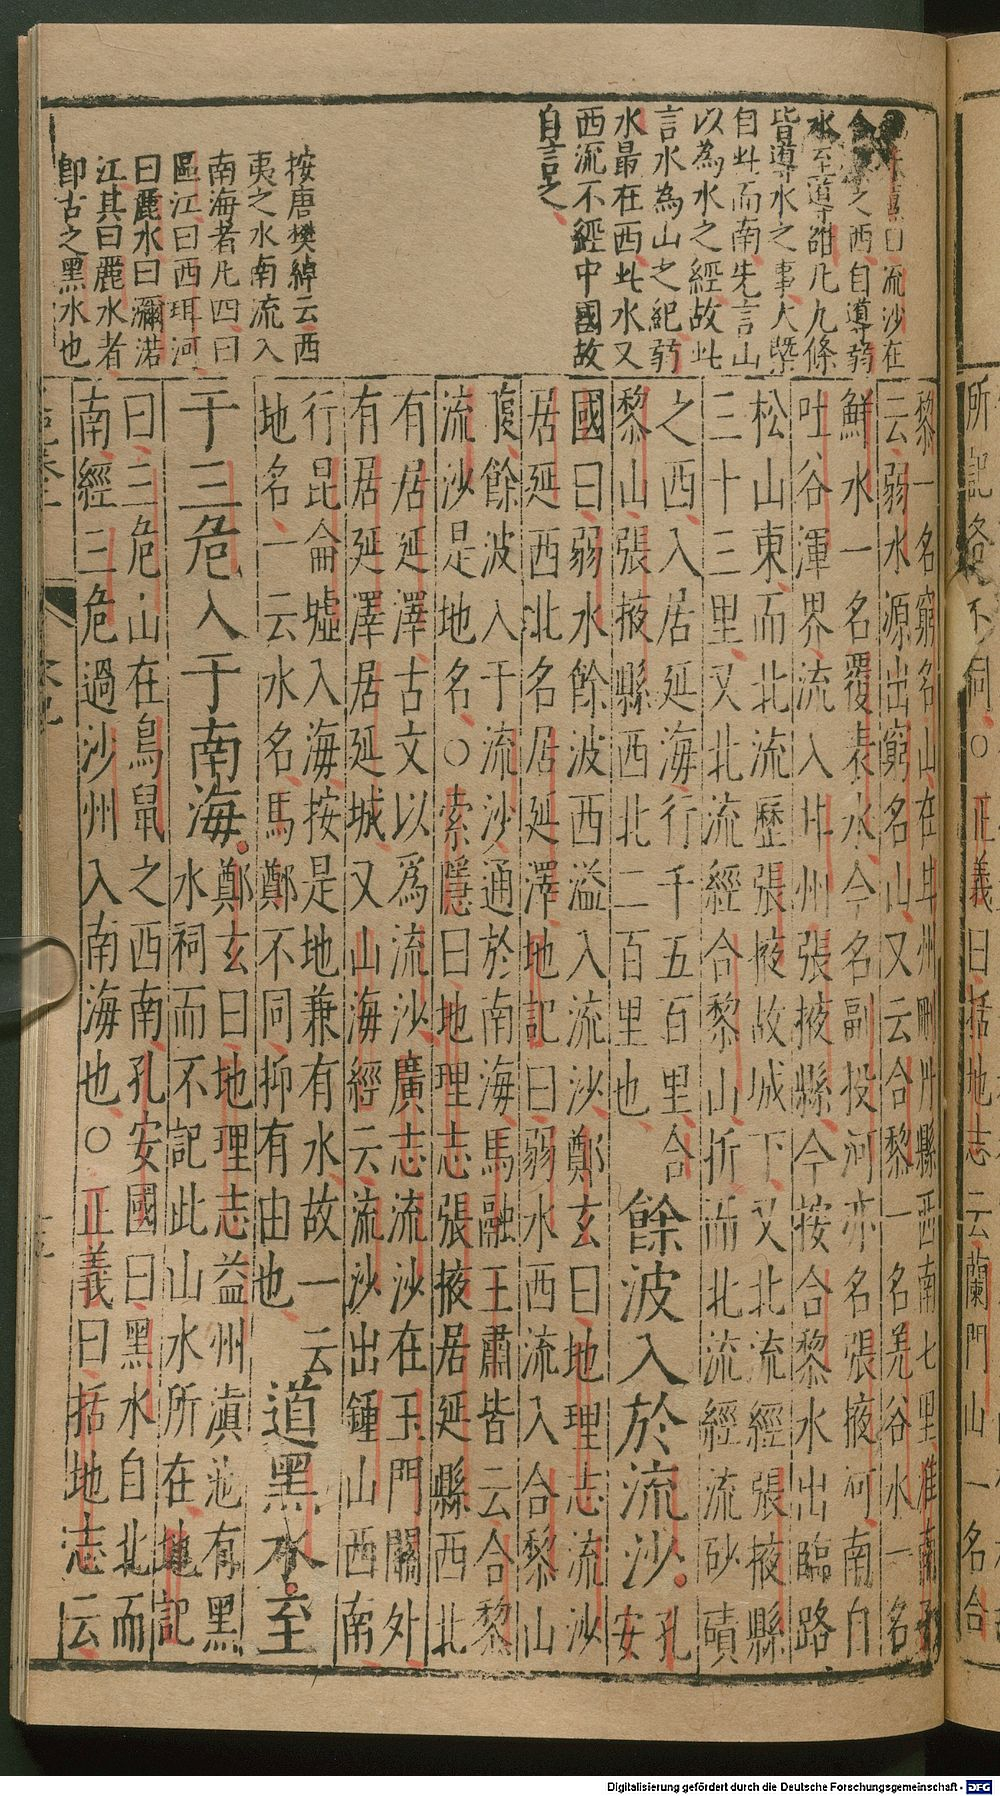 流沙在
合黎之西自導弱
水至導雒凡九條
皆導水之事大槩
自北而南先言山
以為水之經故此
言水為山之紀弱
水最在西此水又
西流不經中國故
自言之
按唐樊綽云西
夷之水南流入
南海者凡四曰
區江曰西珥河
曰麗水曰瀰渃
江其曰麗水者
即古之黑水也
所記各不同○正義曰括地志云蘭門山一名合
黎一名窮名山在甘州刪丹縣西南七里淮南子
云弱水源出窮名山又云合黎一名羌谷水一名
鮮水一名覆表水今名副投河亦名張掖河南自
吐谷渾界流入甘州張掖縣今按合黎水出臨路
松山東而北流歷張掖故城下又北流經張掖縣
三十三里又北流經合黎山折而北流經流砂磧
之西入居延海行千五百里合
黎山張掖縣西北二百里也
餘波入於流沙
孔
安
國曰弱水餘波西溢入流沙鄭玄曰地理志流沙
居延西北名居延澤地記曰弱水西流入合黎山
腹餘波入于流沙通於南海馬融王肅皆云合黎
流沙是地名○索隱曰地理志張掖居延縣西北
有居延澤古文以為流沙廣志流沙在玉門關外
有居延澤居延城又山海經云流沙出鍾山西南
行昆侖墟入海按是地兼有水故一云
地名一云水名馬鄭不同抑有由也
道黑水至
于三危入于南海
鄭玄曰地理志益州滇池有黑
水祠而不記此山水所在地記
曰三危山在鳥鼠之西南孔安國曰黑水自北而
南經三危過沙州入南海也○正義曰括地志云
Digitalisierung gefördert durch die Deutsche Forschungsgemeinschaft - DFG